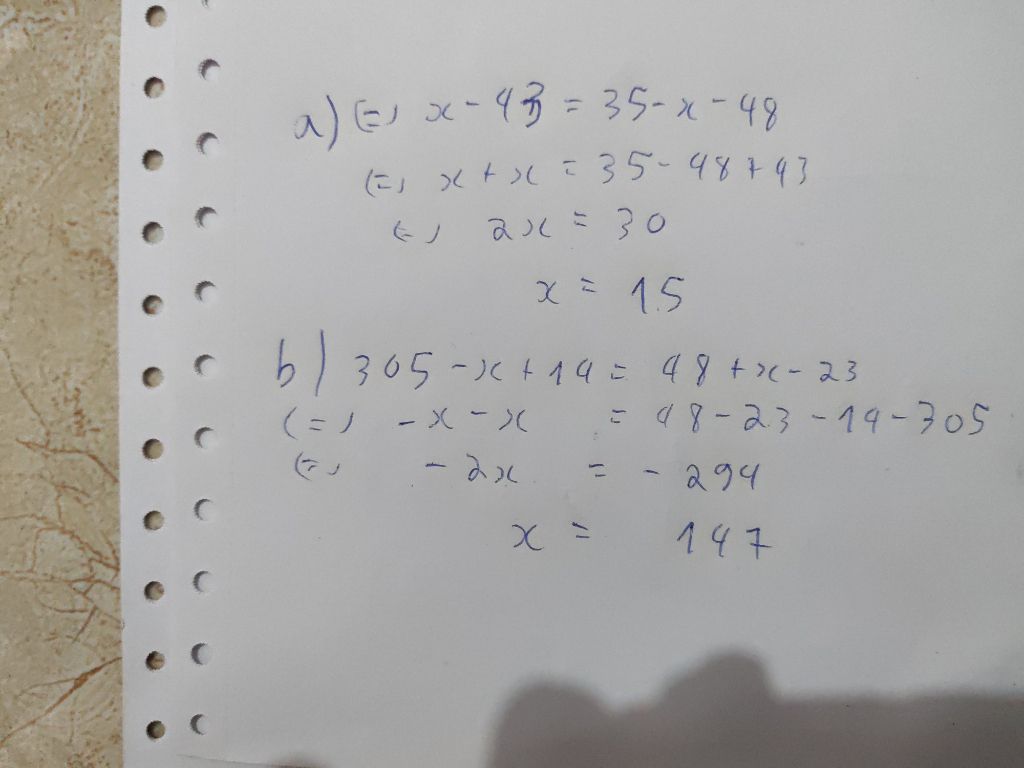 a) (=) x - 43 = 35 - x - 48
(=) x + x = 35 - 48 + 43
(=) 2x = 30
x = 15
b) 305 - x + 14 = 48 + x - 23
(=) - x - x = 48 - 23 - 14 - 305
(=) - 2x = - 294
x = 147